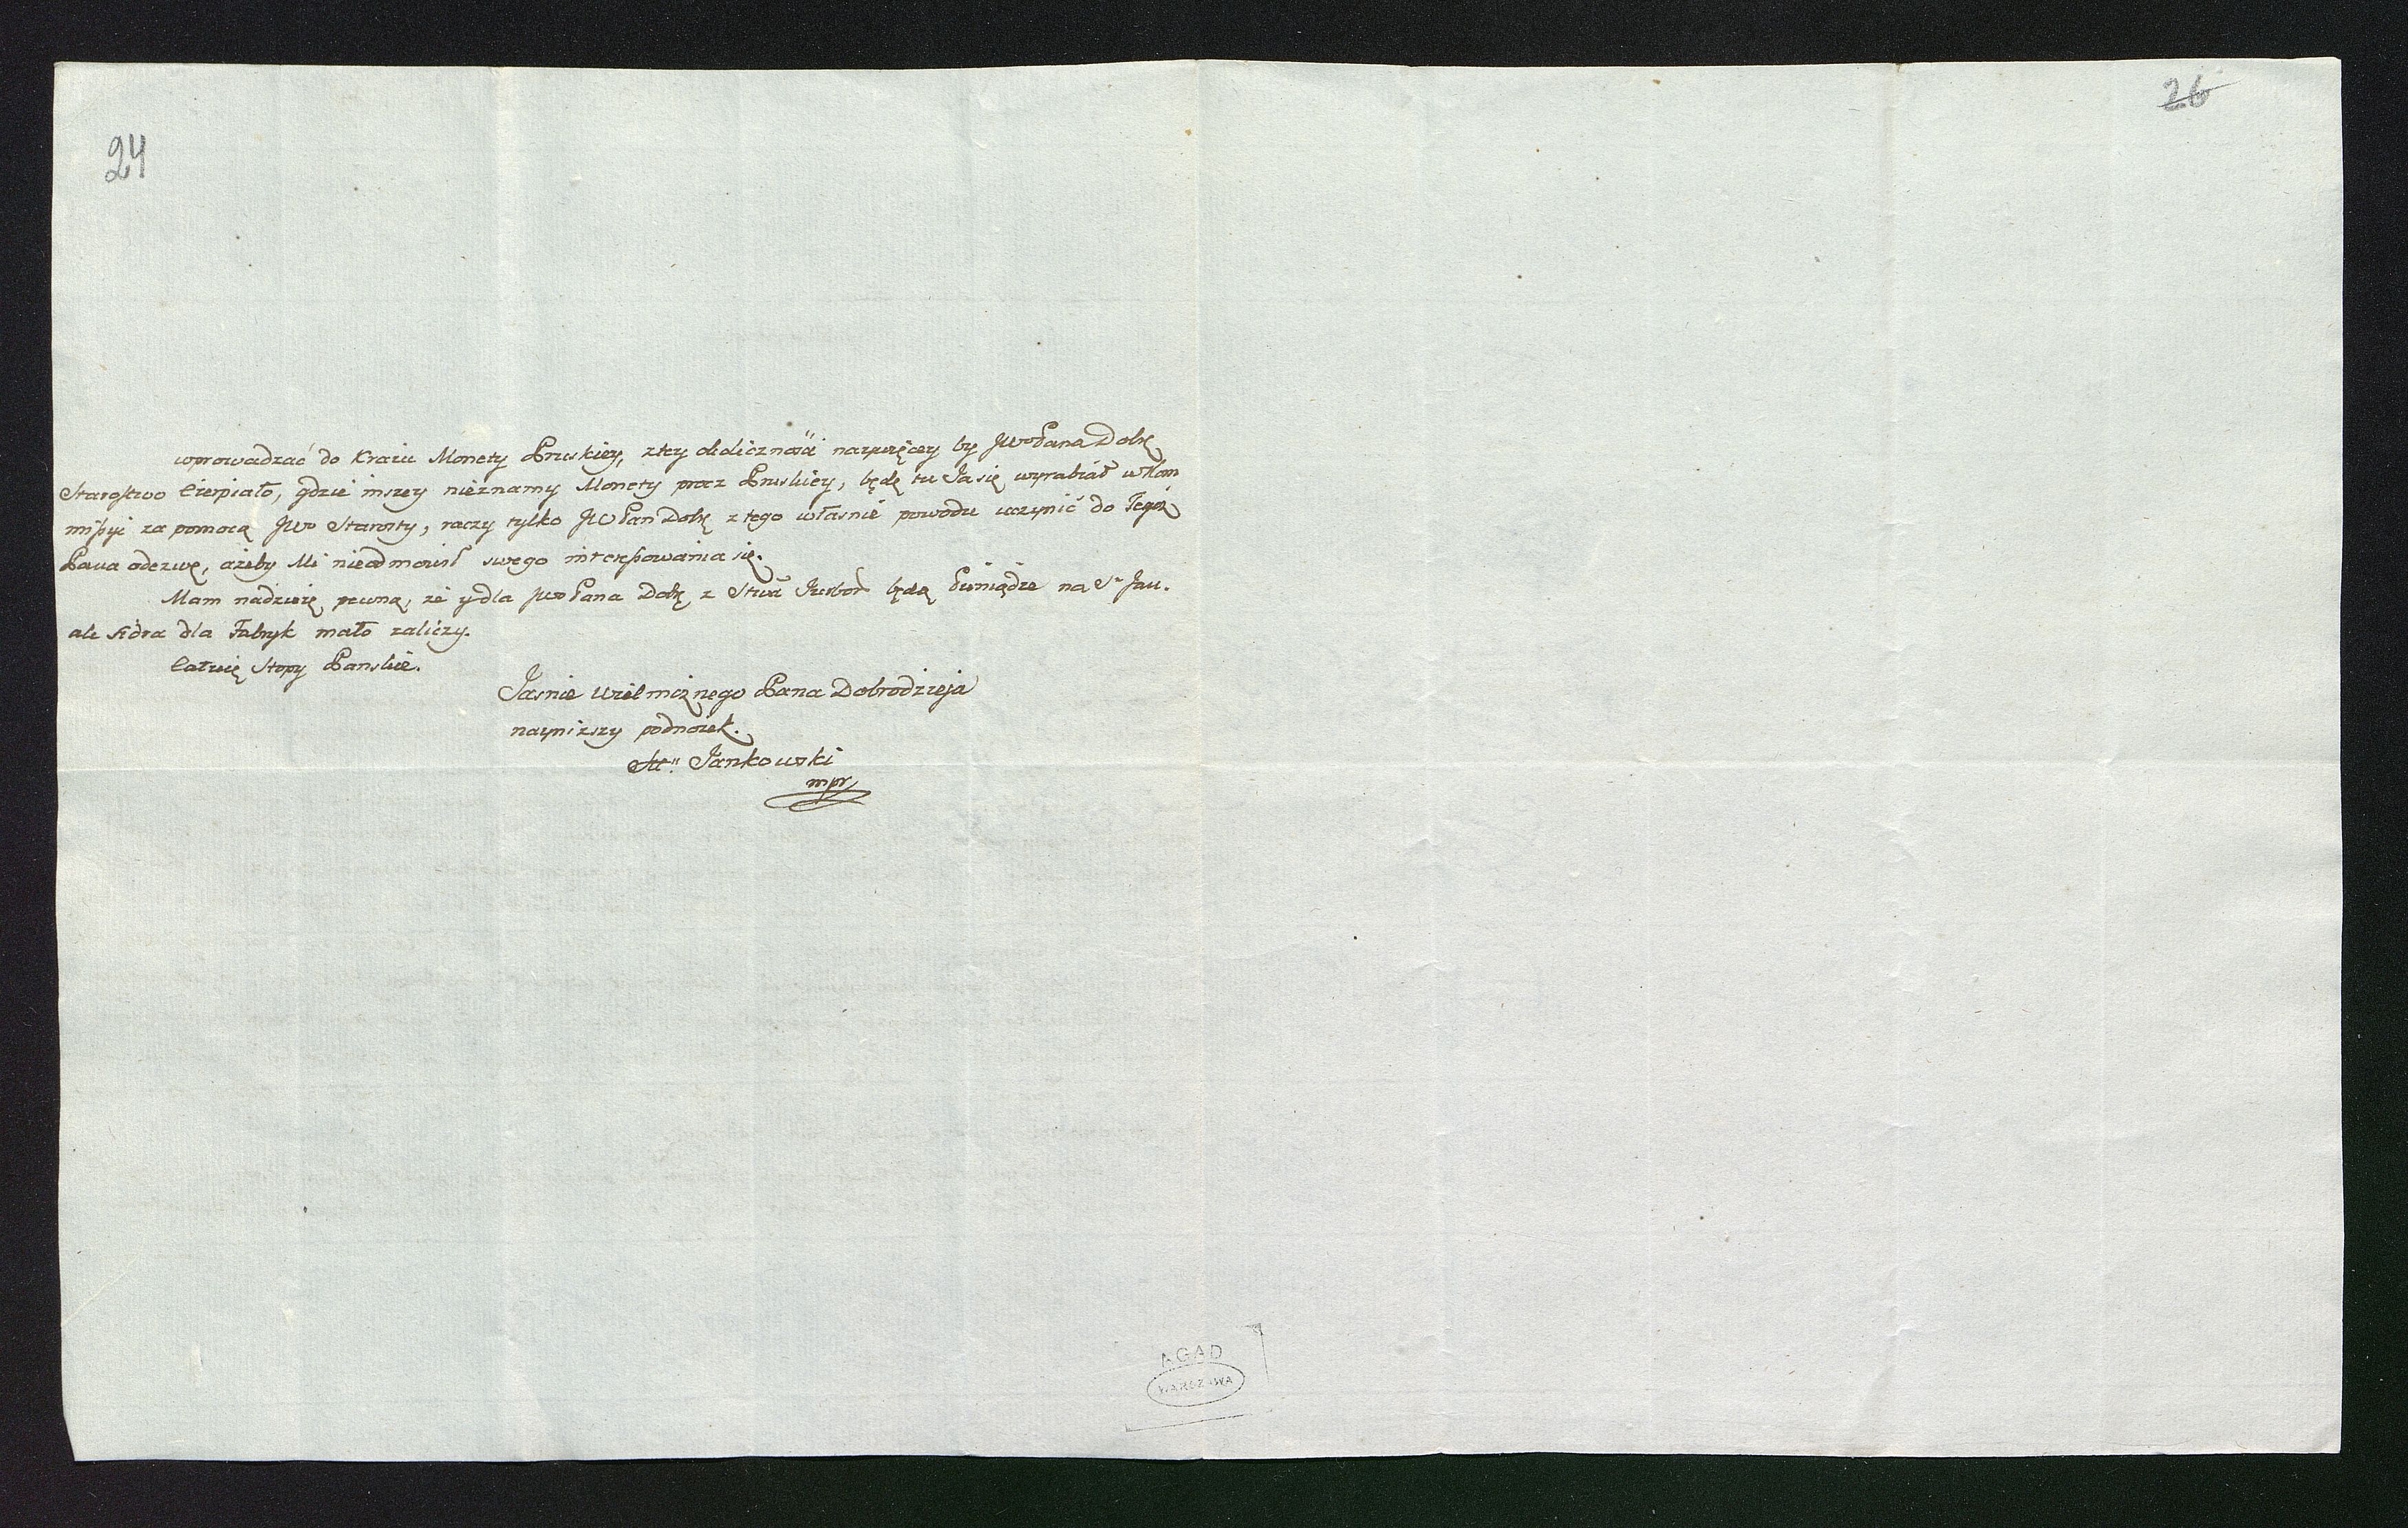 24
26
wprowadzać do Kraiu Monety Pruskiey, ztey okolicznosci naywięcey by JWo Pana Dobę
Starostwo Cierpiało, gdzie inszey nieznamy Monety procz Pruskiey, będę tu Ja się wyrabiáł w Kom
mißyi za pomocą JWo Starosty, raczy tylko JWPan Dobę z tego własnie powodu uczynić do Tegoż
Pana odezwę, ażeby Mi nieodmowił swego intereßowania się.
Mam nadzieię pewną, że y dla JWo Pana Dobę z Stwa Jurbor będą Pieniądze na St Jan.
ale Sidra dla Fabryk mało zaliczy.
Całuię Stopy Panskie.
Jasnie Wielmożnego Pana Dobrodzieja
naynizszy podnożek.
Jankowski
mpr
AGAD
WARSZAWA